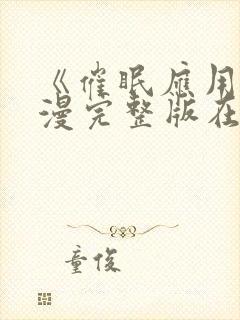 《催眠应用
漫完整版在
童俊